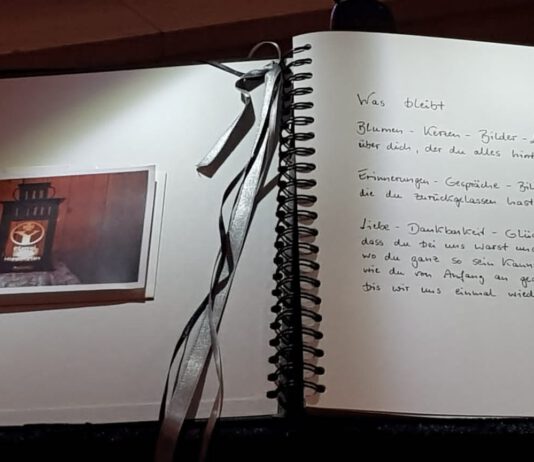 Was bleibt
Blumen - Kerzen - Bilder -
über dich, der du alles
Erinnerungen - Gespräche -
die du zurückgelassen hast
Liebe - Dankbarkeit -
dass du bei uns warst und
wo du ganz so sein
wie du von Anfang an
bis wir uns einmal